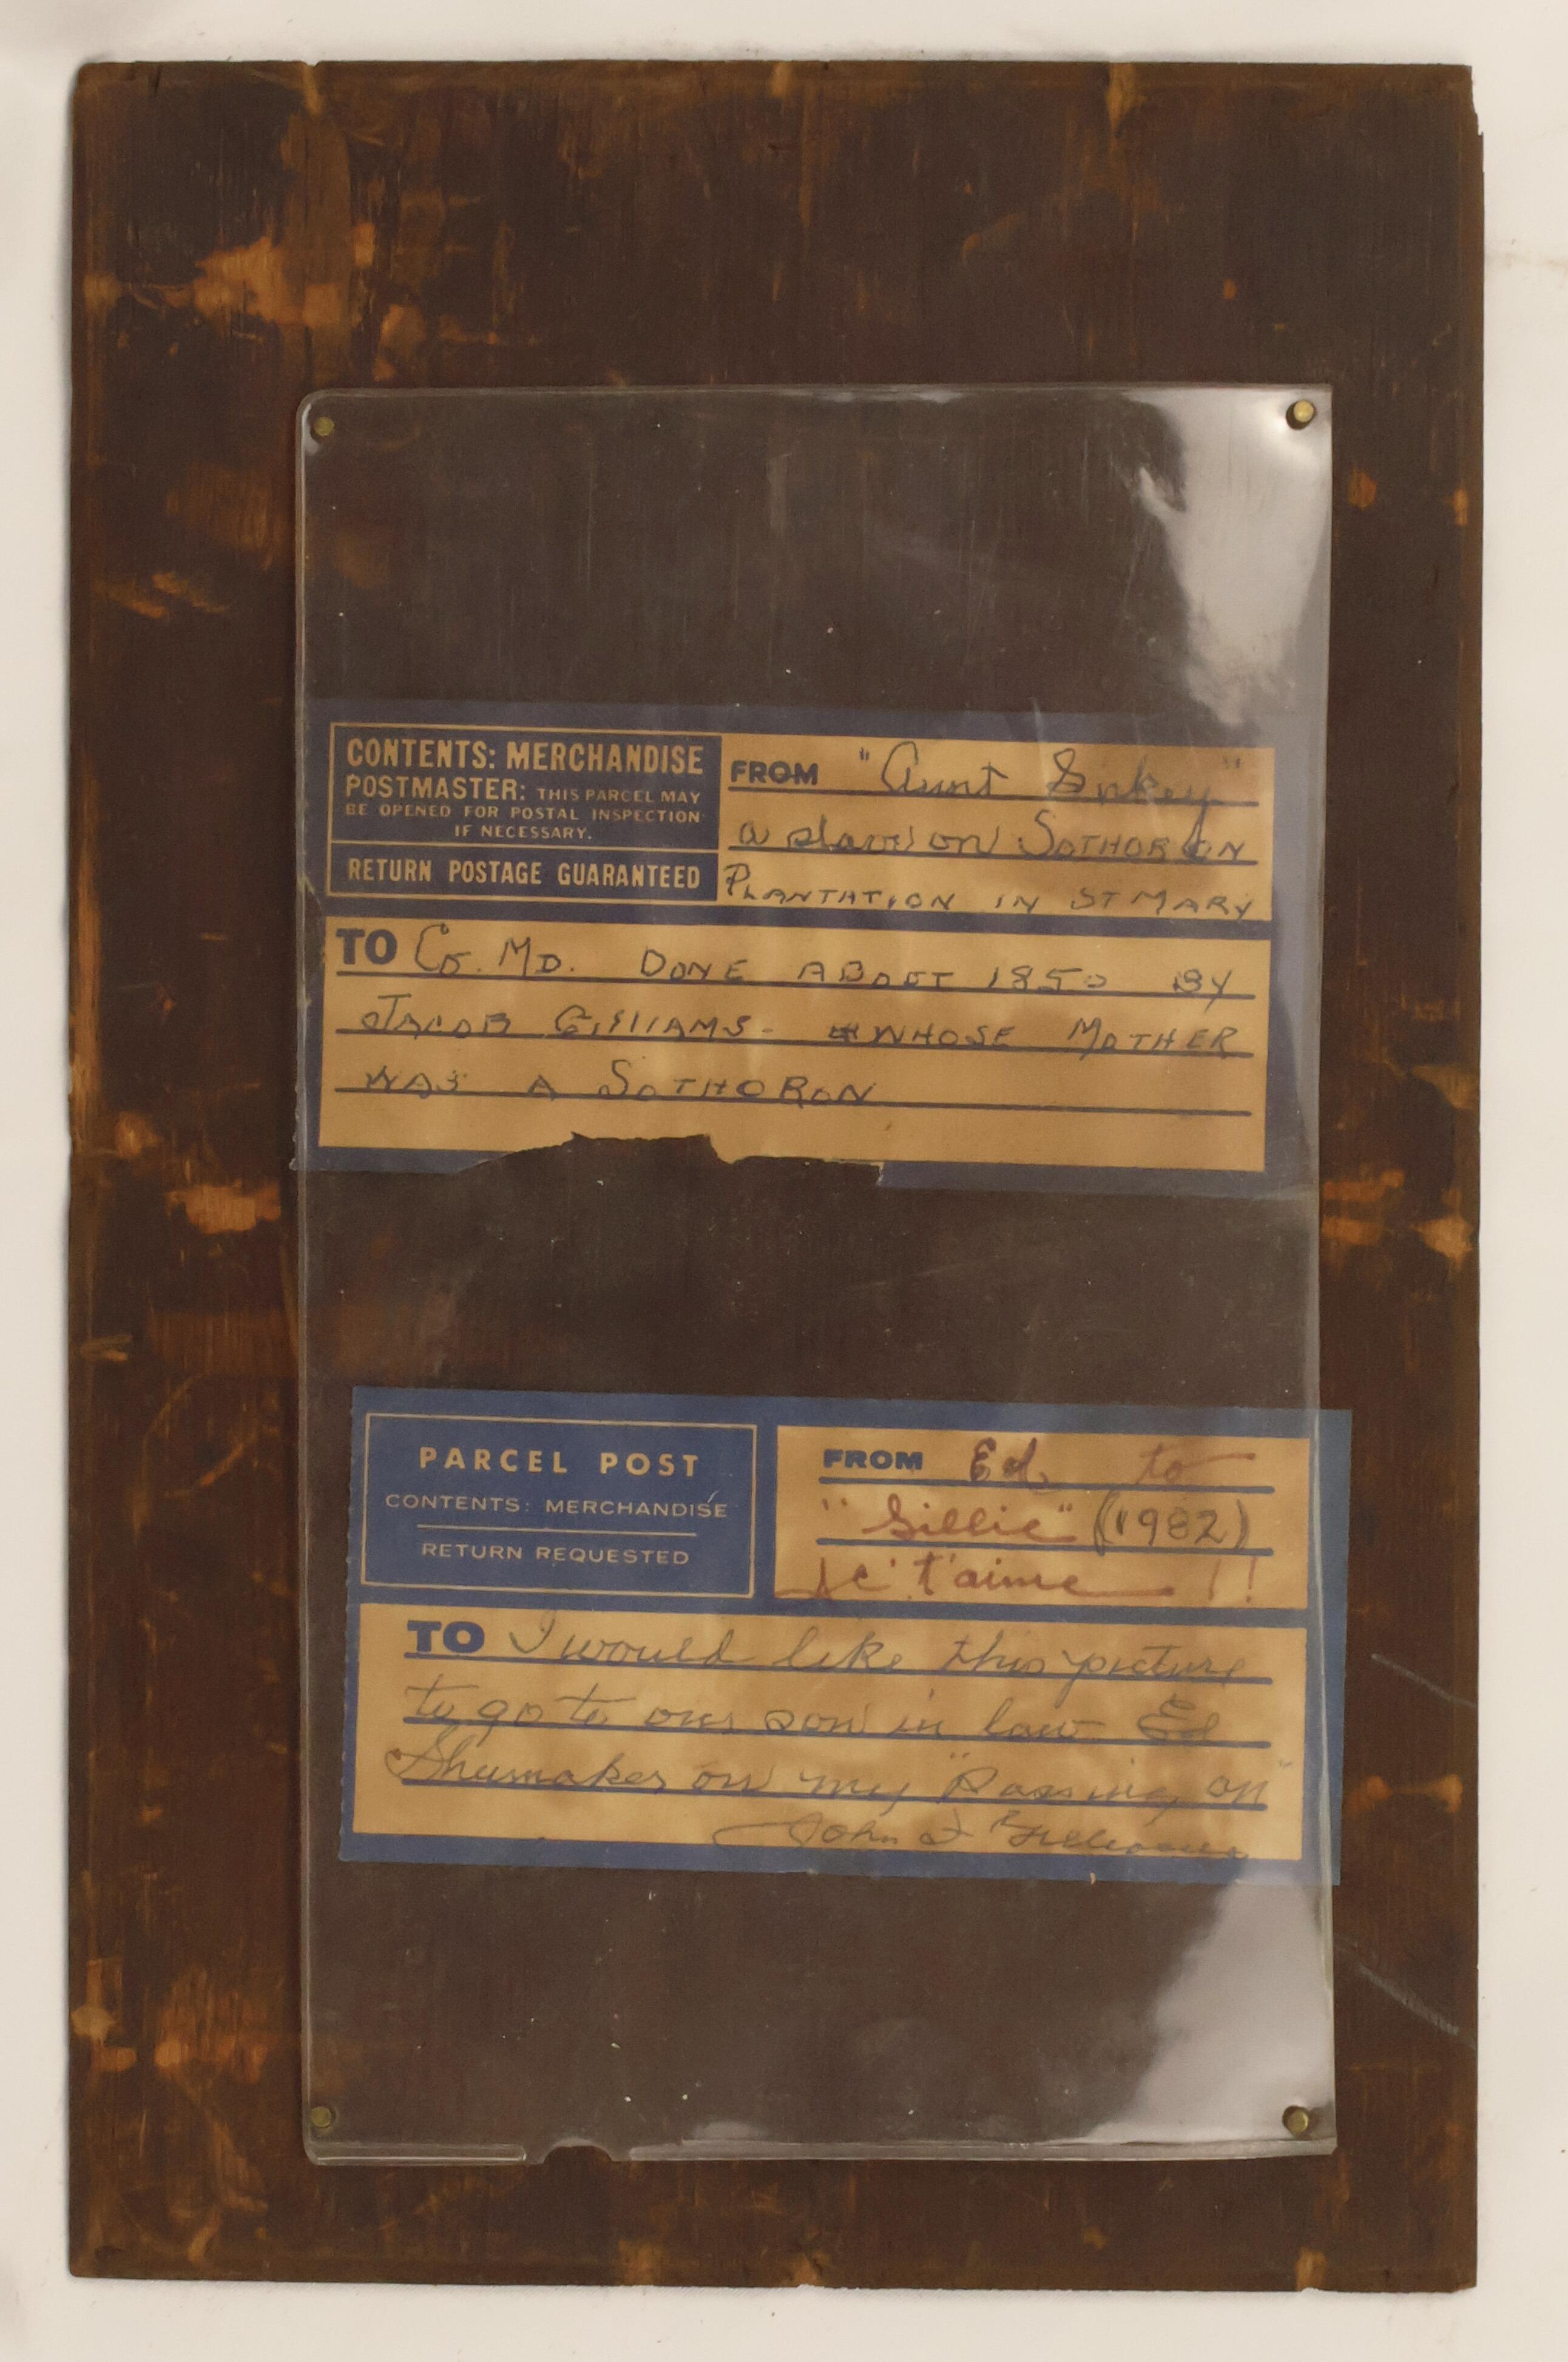 CONTENTS: MERCHANDISE
POSTMASTER: THIS PARCEL MAY
BE OPENED FOR POSTAL INSPECTION
IF NECESSARY.
RETURN POSTAGE GUARANTEED
FROM "Aunt
a slave on SOTHORON
PLANTATION IN ST MARY
TO CO. MD. DONE ABOUT 1850 BY
JACOB GILLIAMS - WHOSE MOTHER
WAS A SOTHORON
PARCEL POST
CONTENTS: MERCHANDISE
RETURN REQUESTED
FROM Ed. to
"Gillie" (1982)
Je t'aime !!
TO I would like this picture
to go to our son in law Ed
Shumaker on my "Passing on"
John F Gilliams